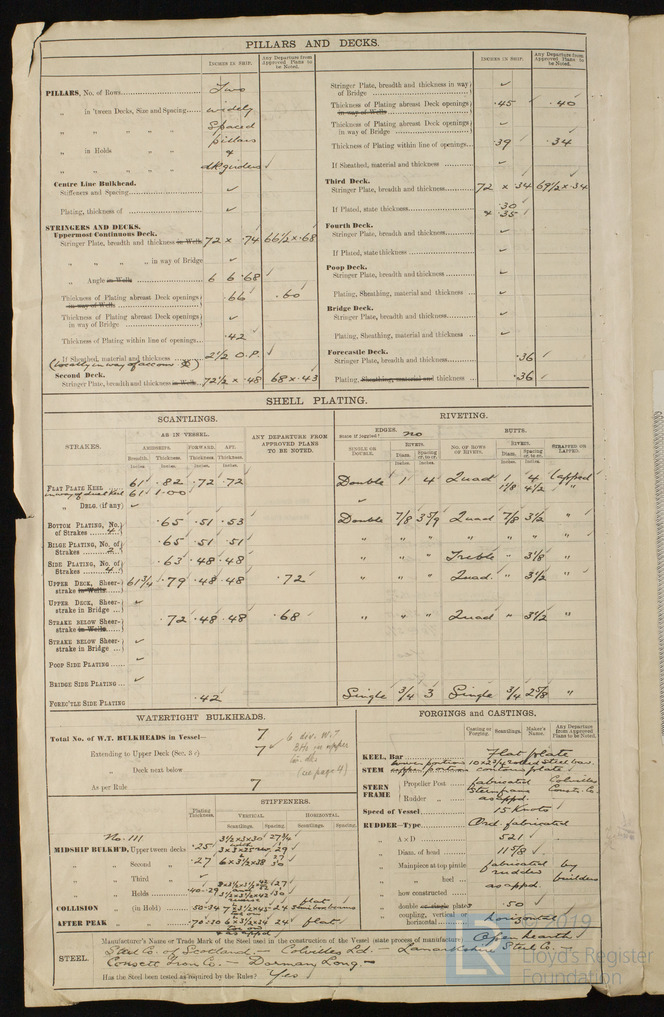 PILLARS AND DECKS.
INCHES IN SHIP. Any Departure from Approved Plans to be Noted.
PILLARS, No. of Rows Two
„ in 'tween Decks, Size and Spacing widely
„ „ „ „ Spaced
„ „ „ „ pillars
„ in Holds „ &
„ „ „ „ dk girders
Centre Line Bulkhead.
Stiffeners and Spacing ✓
Plating, thickness of ✓
STRINGERS AND DECKS.
Uppermost Continuous Deck.
Stringer Plate, breadth and thickness in Wells 72 x .74 66½ x .68
„ „ „ „ in way of Bridge ✓
„ Angle in Wells 6 6 .68
Thickness of Plating abreast Deck openings in way of Wells .66 .60
Thickness of Plating abreast Deck openings in way of Bridge ✓
Thickness of Plating within line of openings .42
If Sheathed, material and thickness 2½ O.P.
(Locally in way of accom.
Second Deck.
Stringer Plate, breadth and thickness in Wells 72½ x .48 68 x .43
INCHES IN SHIP. Any Departure from Approved Plans to be Noted.
Stringer Plate, breadth and thickness in way of Bridge ✓
Thickness of Plating abreast Deck openings in way of Wells .45 .40
Thickness of Plating abreast Deck openings in way of Bridge ✓
Thickness of Plating within line of openings .39 .34
If Sheathed, material and thickness ✓
Third Deck.
Stringer Plate, breadth and thickness 72 x .34 69½ x .34
If Plated, state thickness .30
& .35
Fourth Deck.
Stringer Plate, breadth and thickness ✓
If Plated, state thickness ✓
Poop Deck.
Stringer Plate, breadth and thickness ✓
Plating, Sheathing, material and thickness ✓
Bridge Deck.
Stringer Plate, breadth and thickness ✓
Plating, Sheathing, material and thickness ✓
Forecastle Deck.
Stringer Plate, breadth and thickness .36
Plating, Sheathing, material and thickness .36
SHELL PLATING.
SCANTLINGS. RIVETING.
STRAKES. AS IN VESSEL. ANY DEPARTURE FROM APPROVED PLANS TO BE NOTED.
AMIDSHIPS. FORWARD. AFT.
Breadth. Thickness. Thickness. Thickness.
Inches. Inches. Inches. Inches.
EDGES. State if joggled? no BUTTS.
SINGLE OR DOUBLE. RIVERS. NO. OF ROWS OF RIVETS. RIVERS. STRAPPED OR LAPPED.
Diam. Spacing cr. to cr. Diam. Spacing cr. to cr.
FLAT PLATE KEEL 61 .82 .72 .72 Double 1 4 Quad 1 4 lapped
in way of duct keel 61 1.00 1⅛ 4½ „
„ DBLG. (if any) ✓ ✓
BOTTOM PLATING, No. of Strakes 4 .65 .51 .53 Double ⅞ 3 5/9 Quad ⅞ 3½ „
BILGE PLATING, No. of Strakes 2 .65 .51 .51 „ „ „ „ „ „ „
SIDE PLATING, No. of Strakes 4 .63 .48 .48 „ „ „ Treble „ 3⅛ „
UPPER DECK, Sheerstrake in Wells 61¾ .79 .48 .48 .72 „ „ „ Quad. „ 3½ „
UPPER DECK, Sheerstrake in Bridge ✓
STRAKE BELOW Sheerstrake in Wells .72 .48 .48 .68 „ „ „ Quad „ 3½ „
STRAKE BELOW Sheerstrake in Bridge ✓
POOP SIDE PLATING ✓
BRIDGE SIDE PLATING ✓
FOREC'TLE SIDE PLATING .42 Single ¾ 3 Single ¾ 2⅝ „
WATERTIGHT BULKHEADS.
Total No. of W.T. BULKHEADS in Vessel— 7
Extending to Upper Deck (Sec. 3 c) 7
„ Deck next below
As per Rule 7
6 div. W.T.
BHs in upper
(see page 4)
Plating Thickness. STIFFENERS.
VERTICAL. HORIZONTAL.
Scantlings. Spacing. Scantlings. Spacing.
No. 111
MIDSHIP BULKH'D, Upper tween decks .25 3½ x 3 x 30 27¾
29
„ „ Second „ .27 6 x 3½ x 38 30
„ „ Third „ ✓
„ „ Holds
COLLISION „ (in Hold) 24
AFTER PEAK „ „ 24 flat
FORGINGS and CASTINGS.
Casting or Forging. Scantlings. Maker's Name. Any Departure from Approved Plans to be Noted.
KEEL, Bar Flat plate
STEM lower portion 10 x 2½ rolled steel bar
upper portion contour plate
STERN FRAME { Propeller Post fabricated Colvilles
Sternframe Constr. Co.
Rudder „ as appd.
Speed of Vessel 15 Knots
RUDDER—Type Ord. fabricated
„ A x D 521
„ Diam. of head 11⅝
„ Mainpiece at top pintle fabricated by
„ „ heel rudder builders
„ how constructed as appd.
„ double or single plates .50
„ coupling, vertical or horizontal horizontal
STEEL. Manufacturer's Name or Trade Mark of the Steel used in the construction of the Vessel (state process of manufacture) Open hearth
Steel Co. of Scotland — Colvilles Ld. — Lanarkshire Steel Co. —
Consett Iron Co. — Dorman Long —
Has the Steel been tested as required by the Rules? Yes
2019
Lloyd's Register
Foundation